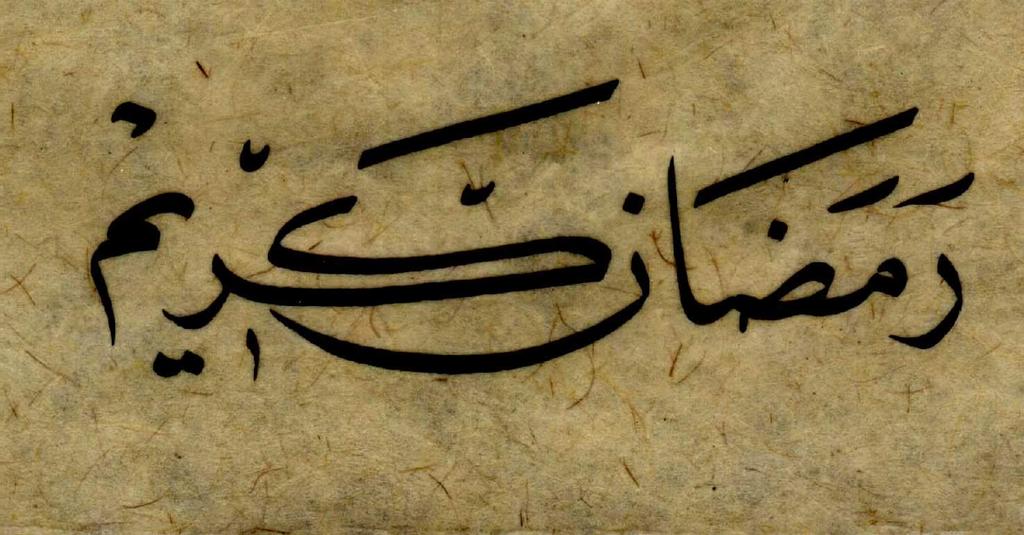 رَمَضَان كَرِيْم